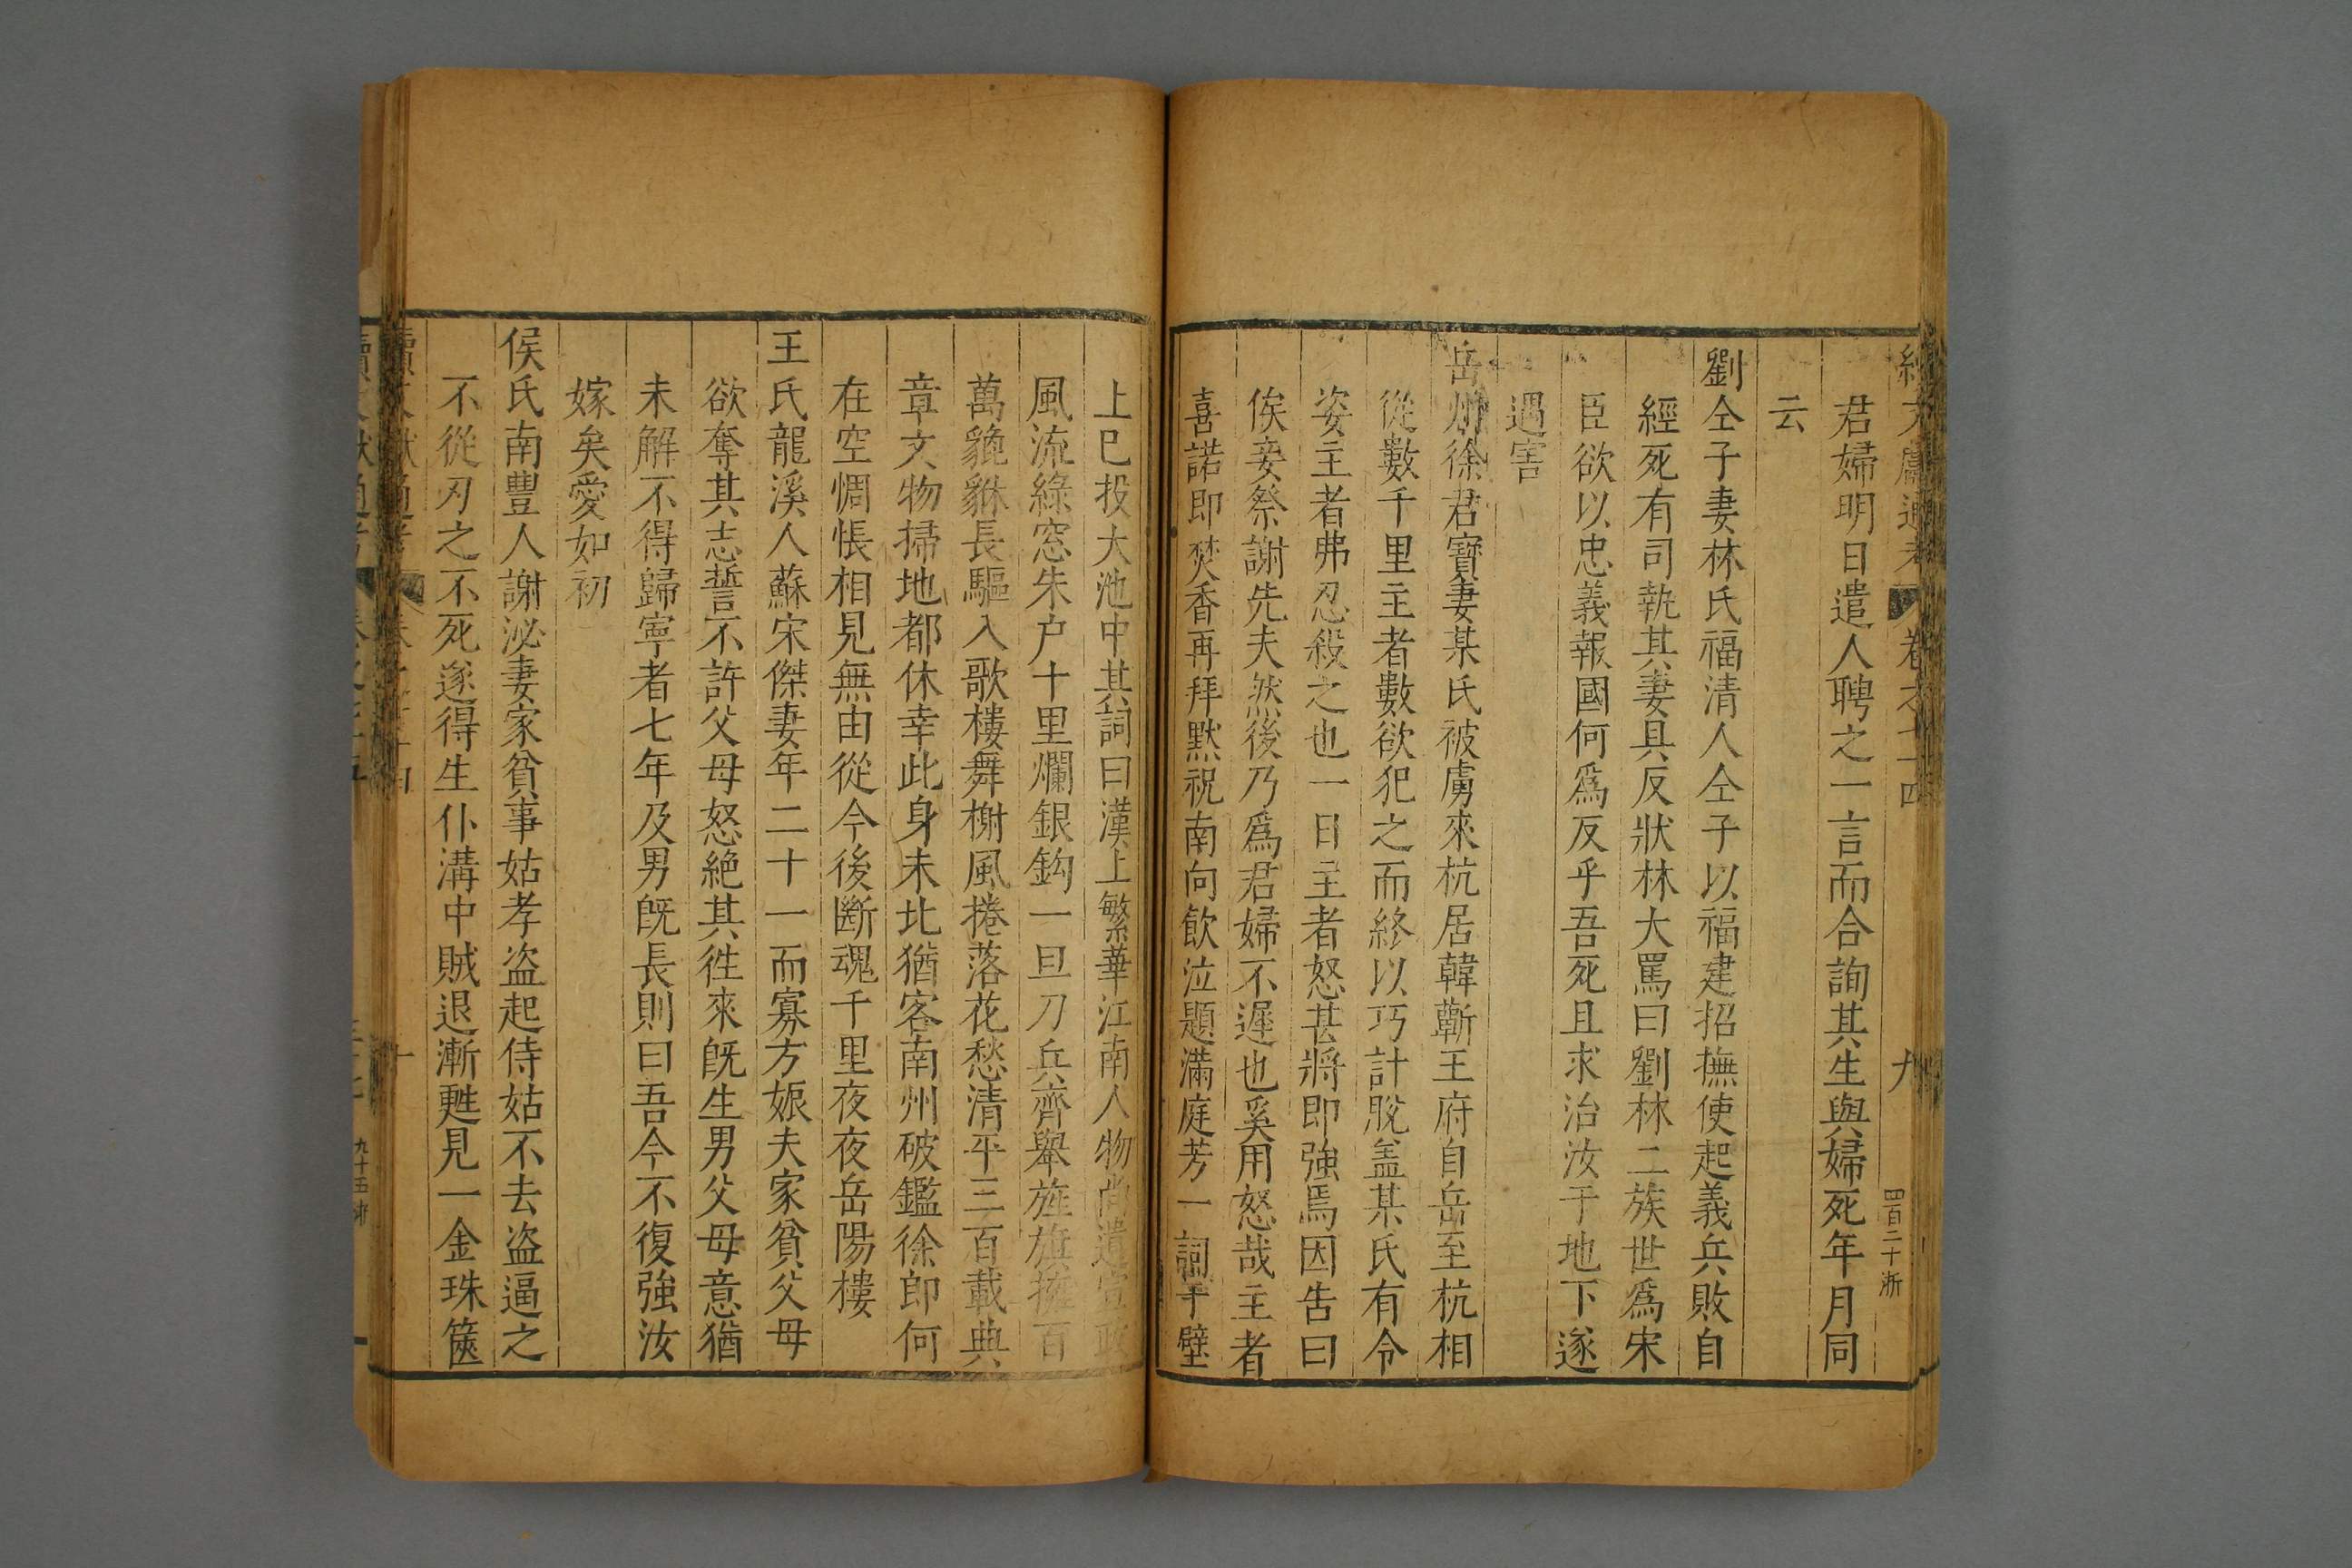 續文獻通考 卷之七十四 九 四百二十浙
君婦明日遣人聘之一言而合詢其生與婦死年月同
云
劉仝子妻林氏福清人仝子以福建招撫使起義兵敗自
經死有司執其妻具反狀林大罵曰劉林二族世爲宋
臣欲以忠義報國何爲反乎吾死且求治汝于地下遂
遇害
岳州徐君寶妻某氏被虜來杭居韓蘄王府自岳至杭相
從數千里主者數欲犯之而終以巧計脫盖某氏有令
姿主者弗忍殺之也一日主者怒甚將即強焉因告曰
俟妾祭謝先夫然後乃爲君婦不遲也奚用怒哉主者
喜諾即焚香再拜默祝南向飲泣題滿庭芳一詞于壁
上巳投大池中其詞曰漢上繁華江南人物尚遺宣政
風流綠窓朱户十里爛銀鈎一旦刀兵齊舉旌旗擁百
萬貔貅長驅入歌樓舞榭風捲落花愁清平三百載典
章文物掃地都休幸此身未北猶客南州破鑑徐郎何
在空惆悵相見無由從今後斷魂千里夜夜岳陽樓
王氏龍溪人蘇宋傑妻年二十一而寡方娠夫家貧父母
欲奪其志誓不許父母怒絕其徃來旣生男父母意猶
未解不得歸寧者七年及男旣長則曰吾今不復強汝
嫁矣愛如初
侯氏南豐人謝泌妻家貧事姑孝盗起侍姑不去盗逼之
不從刃之不死遂得生仆溝中賊退漸甦見一金珠篋